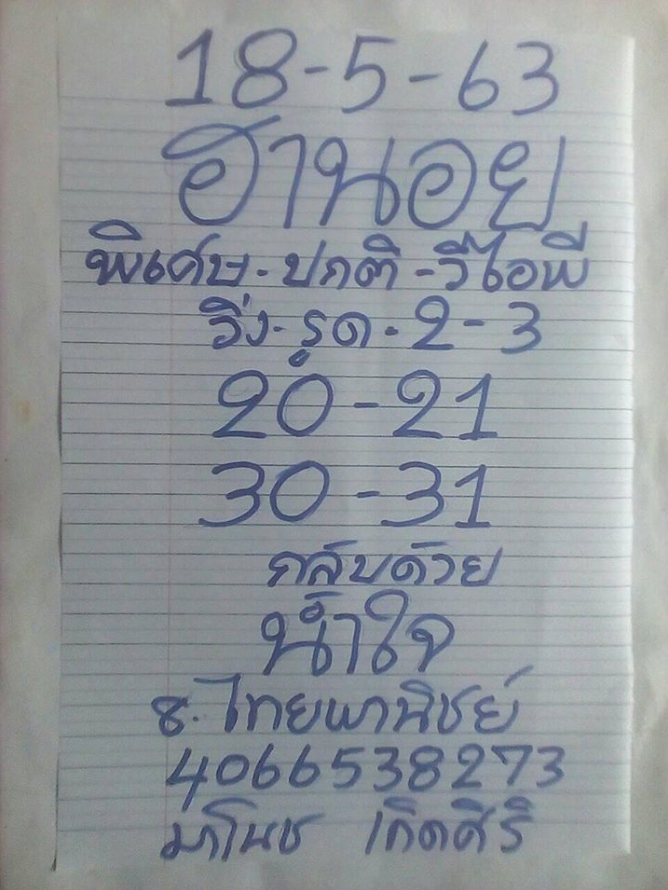 18-5-63
ฮานอย
พิเศษ-ปกติ-วีไอพี
วิ่ง-รูด-2-3
20-21
30-31
กลับด้วย
น้ำใจ
ธ.ไทยพานิชย์
4066538273
มาโนช เกิดศิริ